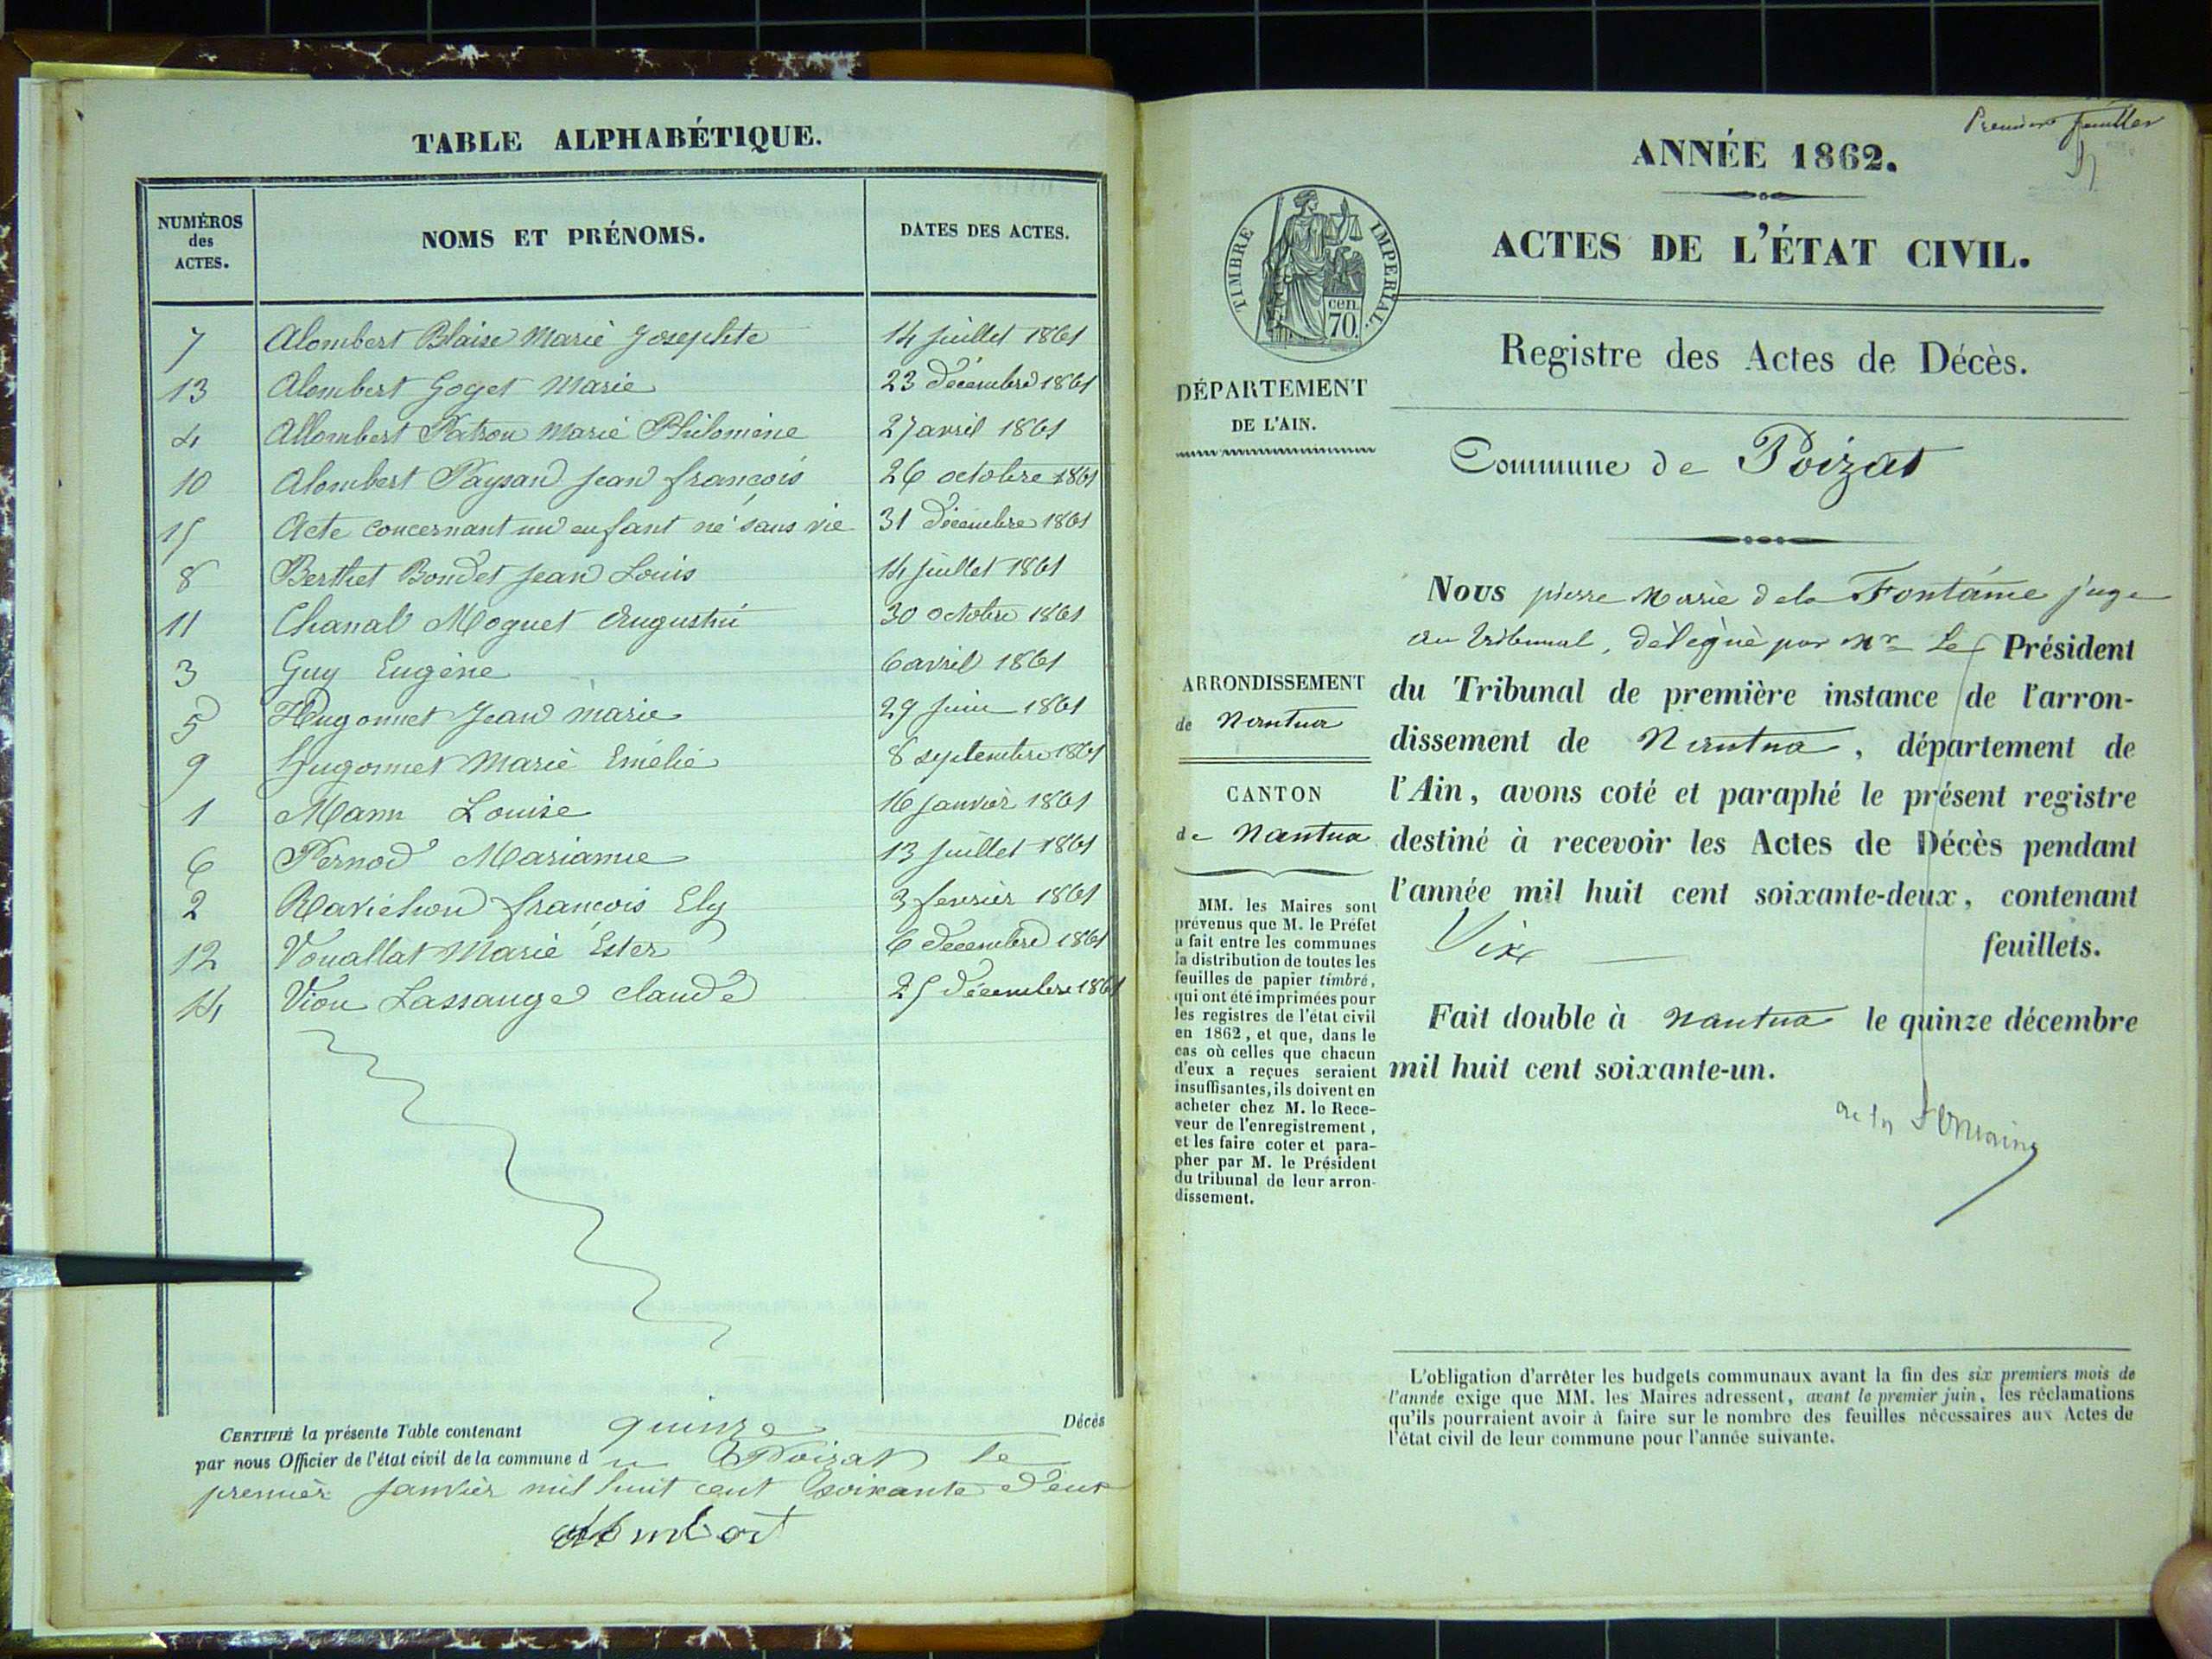 TABLE ALPHABÉTIQUE.
NUMÉROS des ACTES. NOMS ET PRÉNOMS. DATES DES ACTES.
7 Alombert Blaise Marie Josephte 14 juillet 1861
13 Alombert Goget Marie 23 décembre 1861
4 Allombert Patron Marie Philomène 27 avril 1861
10 Alombert Paysan Jean françois 26 octobre 1861
15 Acte concernant un enfant né sans vie 31 décembre 1861
8 Berthet Bondet Jean Louis 14 juillet 1861
11 Chanal Moguet Augustin 30 octobre 1861
3 Guy Eugène 6 avril 1861
5 Hugonnet Jean marie 29 juin 1861
9 Hugonnet Marie Emélie 8 septembre 1861
1 Mann Louise 16 janvier 1861
6 Pernod Marianne 13 juillet 1861
2 Ravichon françois Ely 3 fevrier 1861
12 Vouallat Marie Ester 6 decembre 1861
14 Viou Lassange claude 25 décembre 1861
CERTIFIÉ la présente Table contenant quinze Décès
par nous Officier de l'état civil de la commune du Poizat le
premier janvier mil huit cent soixante deux
Premier feuillet
ANNÉE 1862.
ACTES DE L'ÉTAT CIVIL.
TIMBRE IMPERIAL.
cen.
70.
Registre des Actes de Décès.
DÉPARTEMENT
DE L'AIN.
Commune de Poizat
Nous pierre Marie dela Fontaine juge
au tribunal, délégué par Mr Le Président
du Tribunal de première instance de l'arron-
dissement de Nantua, département de
l'Ain, avons coté et paraphé le présent registre
destiné à recevoir les Actes de Décès pendant
l'année mil huit cent soixante-deux, contenant
feuillets.
Fait double à nantua le quinze décembre
mil huit cent soixante-un.
ARRONDISSEMENT
de Nantua
CANTON
de Nantua
MM. les Maires sont
prévenus que M. le Préfet
a fait entre les communes
la distribution de toutes les
feuilles de papier timbré,
qui ont été imprimées pour
les registres de l'état civil
en 1862, et que, dans le
cas où celles que chacun
d'eux a reçues seraient
insuffisantes, ils doivent en
acheter chez M. le Rece-
veur de l'enregistrement,
et les faire coter et para-
pher par M. le Président
du tribunal de leur arron-
dissement.
L'obligation d'arrêter les budgets communaux avant la fin des six premiers mois de
l'année exige que MM. les Maires adressent, avant le premier juin, les réclamations
qu'ils pourraient avoir à faire sur le nombre des feuilles nécessaires aux Actes de
l'état civil de leur commune pour l'année suivante.